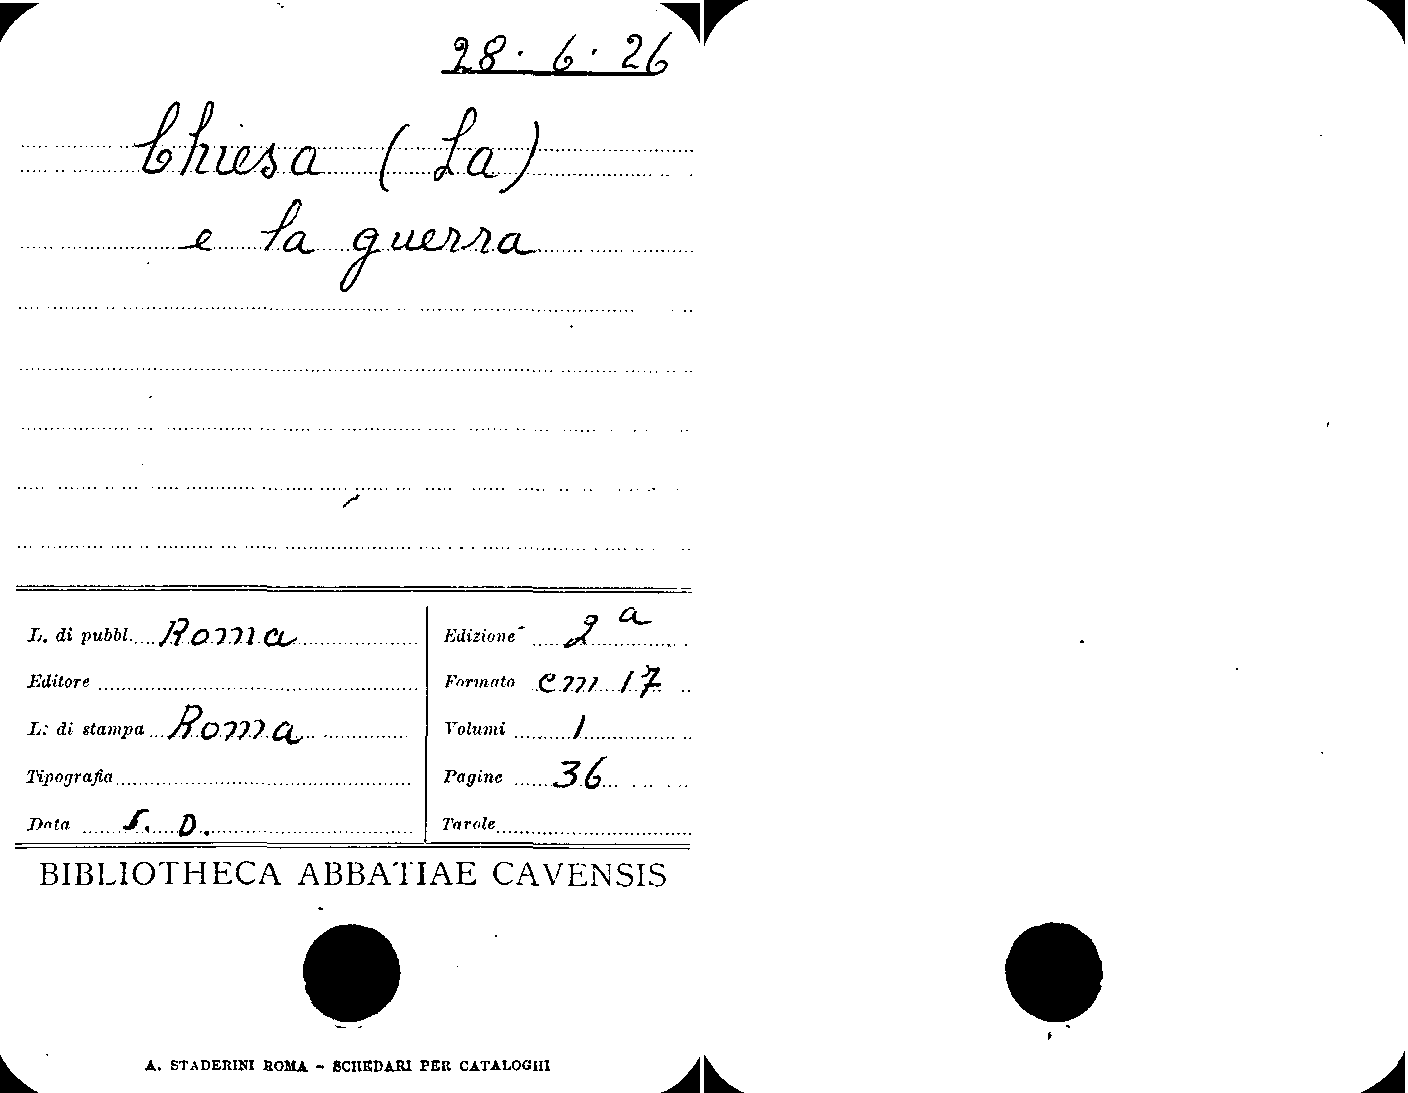 28. 6. 26
Chiesa (La)
e la guerra
L. di pubbl. Roma
Editore
L. di stampa Roma
Tipografia
Data S. D.
Edizione 2a
Formato cm 17
Volumi 1
Pagine 36
Tavole
BIBLIOTHECA ABBATIAE CAVENSIS
A. STADERINI ROMA - SCHEDARI PER CATALOGHI